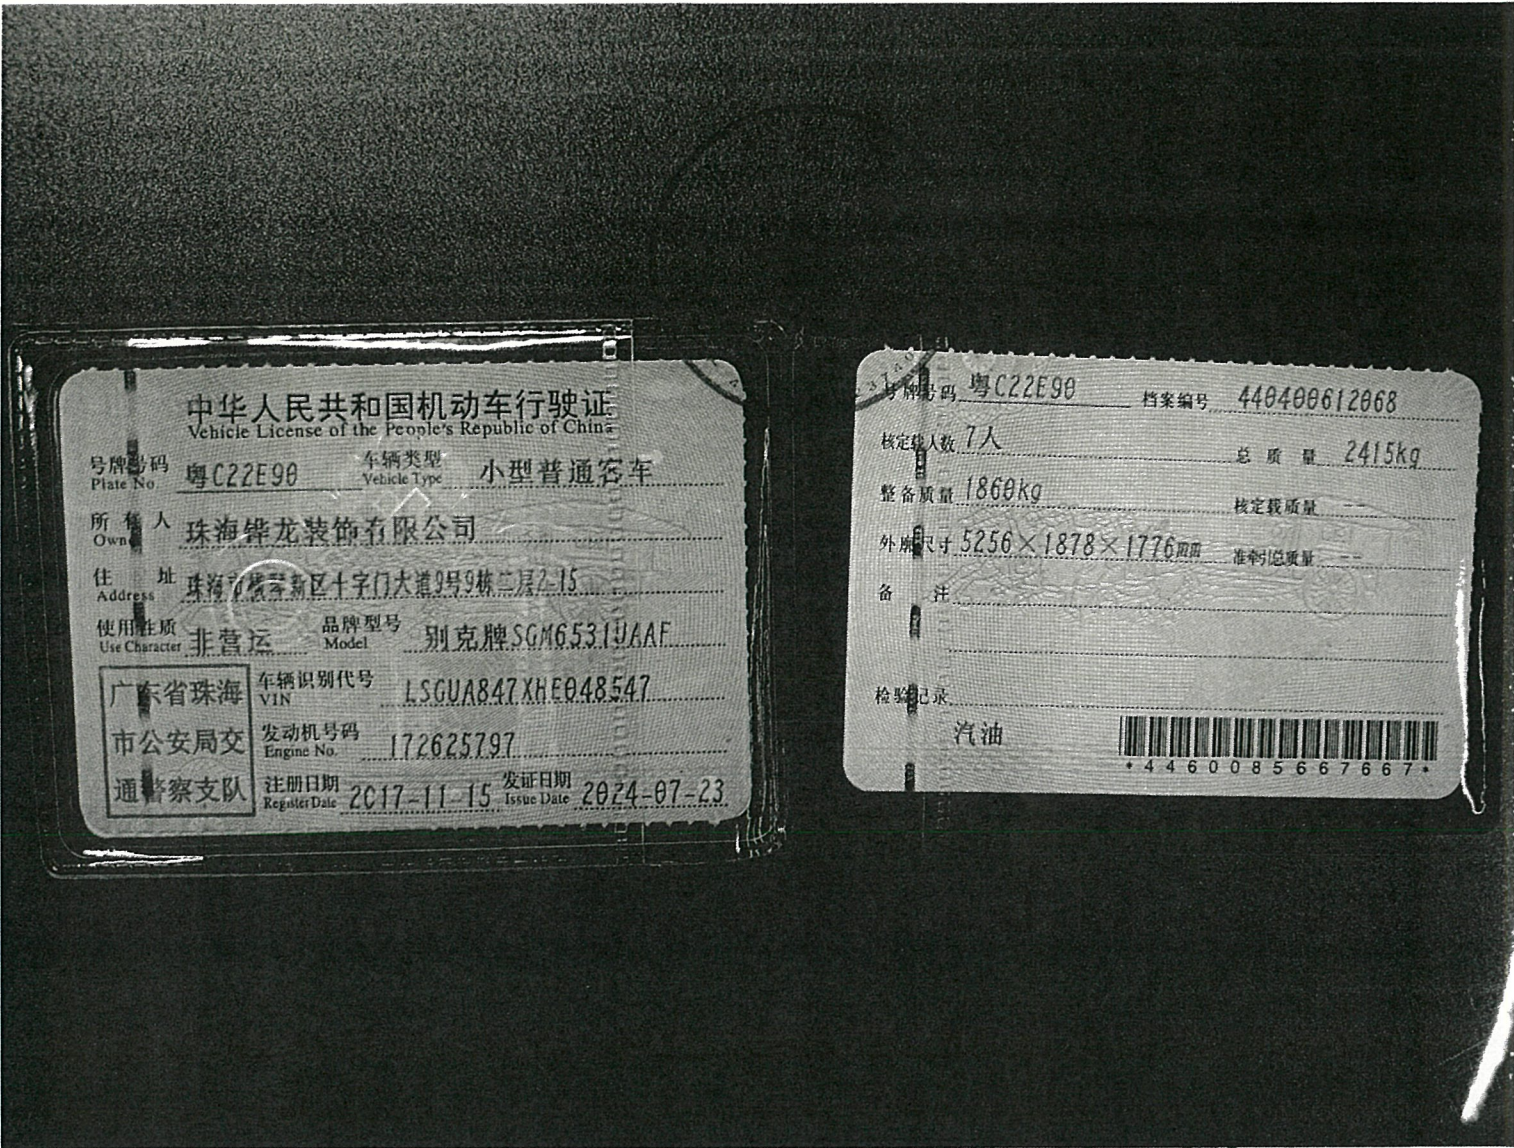 中华人民共和国机动车行驶证
Vehicle License of the People's Republic of China
号牌号码 Plate No. 粤C22E90 车辆类型 Vehicle Type 小型普通客车
所有人 Owner 珠海铧龙装饰有限公司
住址 Address 珠海市横琴新区十字门大道9号9栋二层2-15
使用性质 Use Character 非营运 品牌型号 Model 别克牌SGM6531UAAF
车辆识别代号 VIN LSGUA847XHE048547
发动机号码 Engine No. 172625797
注册日期 Register Date 2017-11-15 发证日期 Issue Date 2024-07-23
广东省珠海
市公安局交
通警察支队
号牌号码 粤C22E90 档案编号 440400612068
核定载人数 7人 总质量 2415kg
整备质量 1860kg 核定载质量 --
外廓尺寸 5256×1878×1776mm 准牵引总质量 --
备注
检验记录
汽油
*4460085667667*